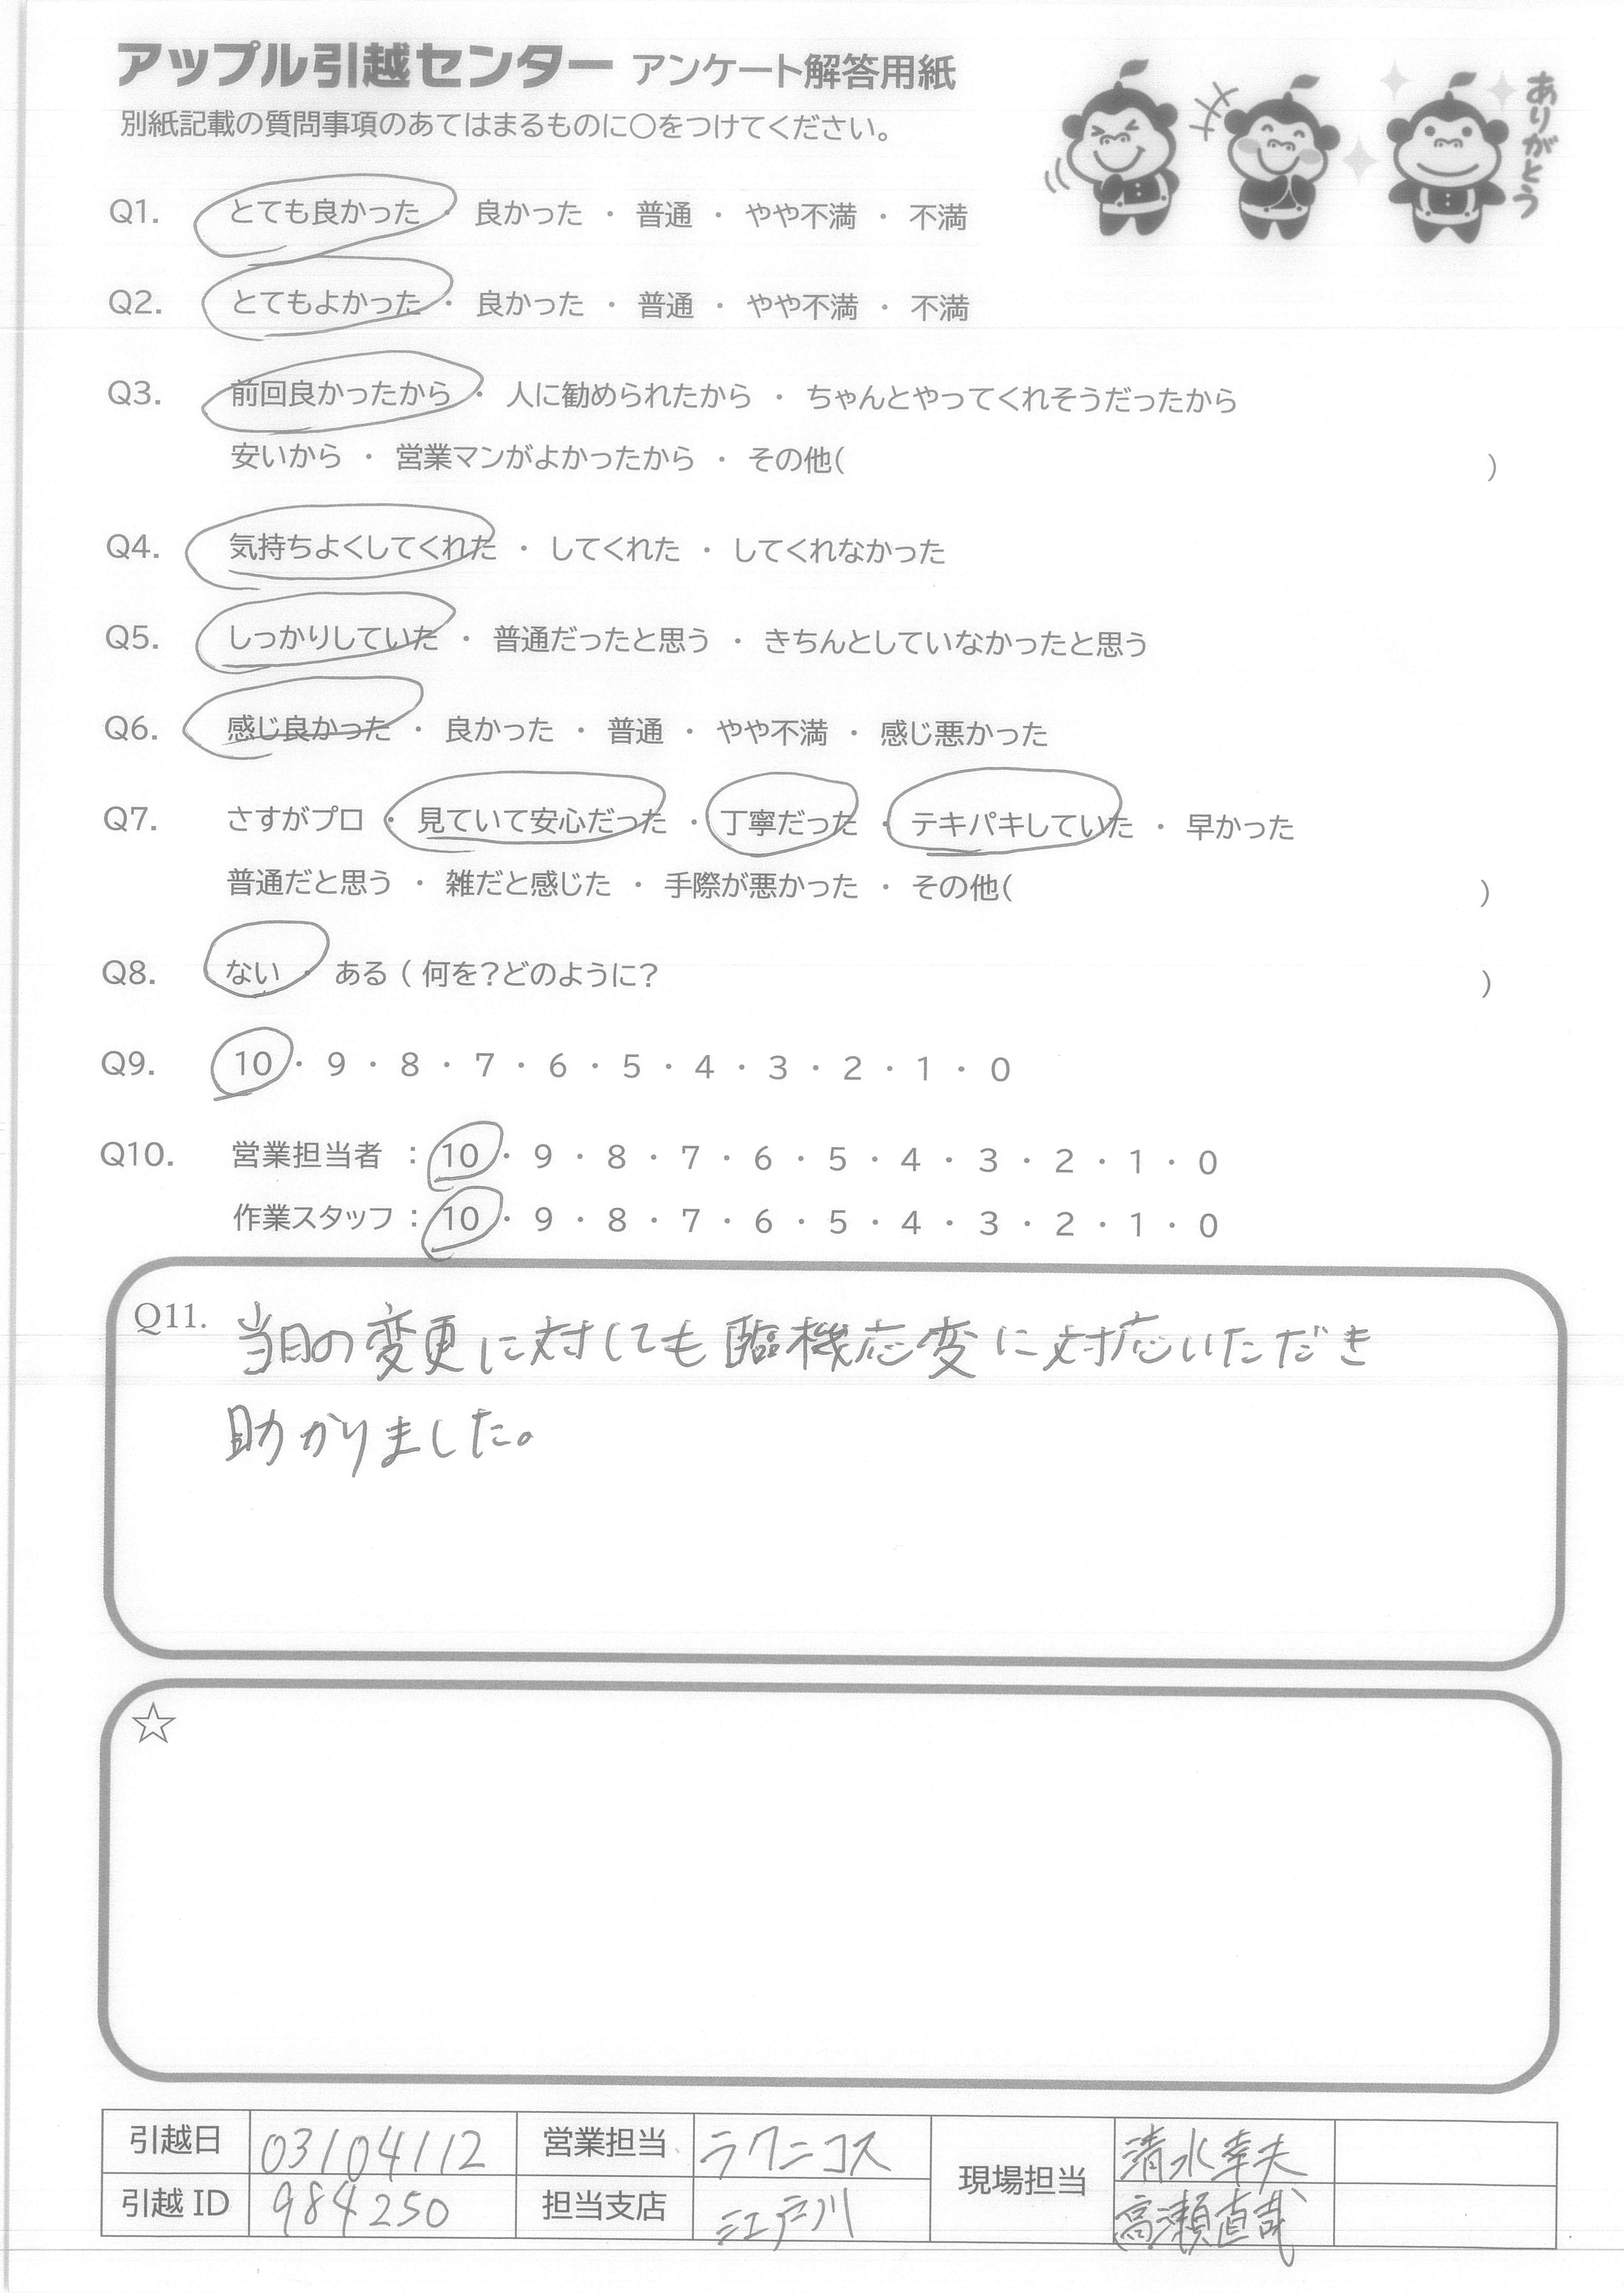 アップル引越センター アンケート解答用紙
別紙記載の質問事項のあてはまるものに○をつけてください。
ありがとう
Q1. とても良かった ・ 良かった ・ 普通 ・ やや不満 ・ 不満
Q2. とてもよかった ・ 良かった ・ 普通 ・ やや不満 ・ 不満
Q3. 前回良かったから ・ 人に勧められたから ・ ちゃんとやってくれそうだったから
安いから ・ 営業マンがよかったから ・ その他( )
Q4. 気持ちよくしてくれた ・ してくれた ・ してくれなかった
Q5. しっかりしていた ・ 普通だったと思う ・ きちんとしていなかったと思う
Q6. 感じ良かった ・ 良かった ・ 普通 ・ やや不満 ・ 感じ悪かった
Q7. さすがプロ ・ 見ていて安心だった ・ 丁寧だった ・ テキパキしていた ・ 早かった
普通だと思う ・ 雑だと感じた ・ 手際が悪かった ・ その他( )
Q8. ない ・ ある ( 何を?どのように? )
Q9. 10 ・ 9 ・ 8 ・ 7 ・ 6 ・ 5 ・ 4 ・ 3 ・ 2 ・ 1 ・ 0
Q10. 営業担当者 : 10 ・ 9 ・ 8 ・ 7 ・ 6 ・ 5 ・ 4 ・ 3 ・ 2 ・ 1 ・ 0
作業スタッフ : 10 ・ 9 ・ 8 ・ 7 ・ 6 ・ 5 ・ 4 ・ 3 ・ 2 ・ 1 ・ 0
Q11. 当日の変更に対しても臨機応変に対応いただき
助かりました。
☆
引越日 03/04/12 営業担当 ラクニコス 現場担当 清水幸夫
引越 ID 984250 担当支店 江戸川 高瀬直哉